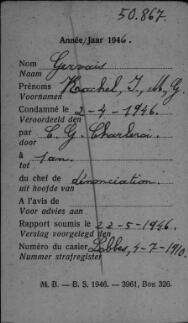 50.867.
Année/Jaar 1946.
Nom Gervais
Naam
Prénoms Rachel, J, M, G.
Voornamen
Condamné le 2-4-1946.
Veroordeeld den
par C. G. Charleroi
door
à 1 an.
tot
du chef de dénonciation.
uit hoofde van
A l'avis de
Voor advies aan
Rapport soumis le 22-5-1946.
Verslag voorgelegd den
Numéro du casier Lobbes, 4-7-1910.
Nummer strafregister
M. B. — B. S. 1946. — 3961, Bon 326.